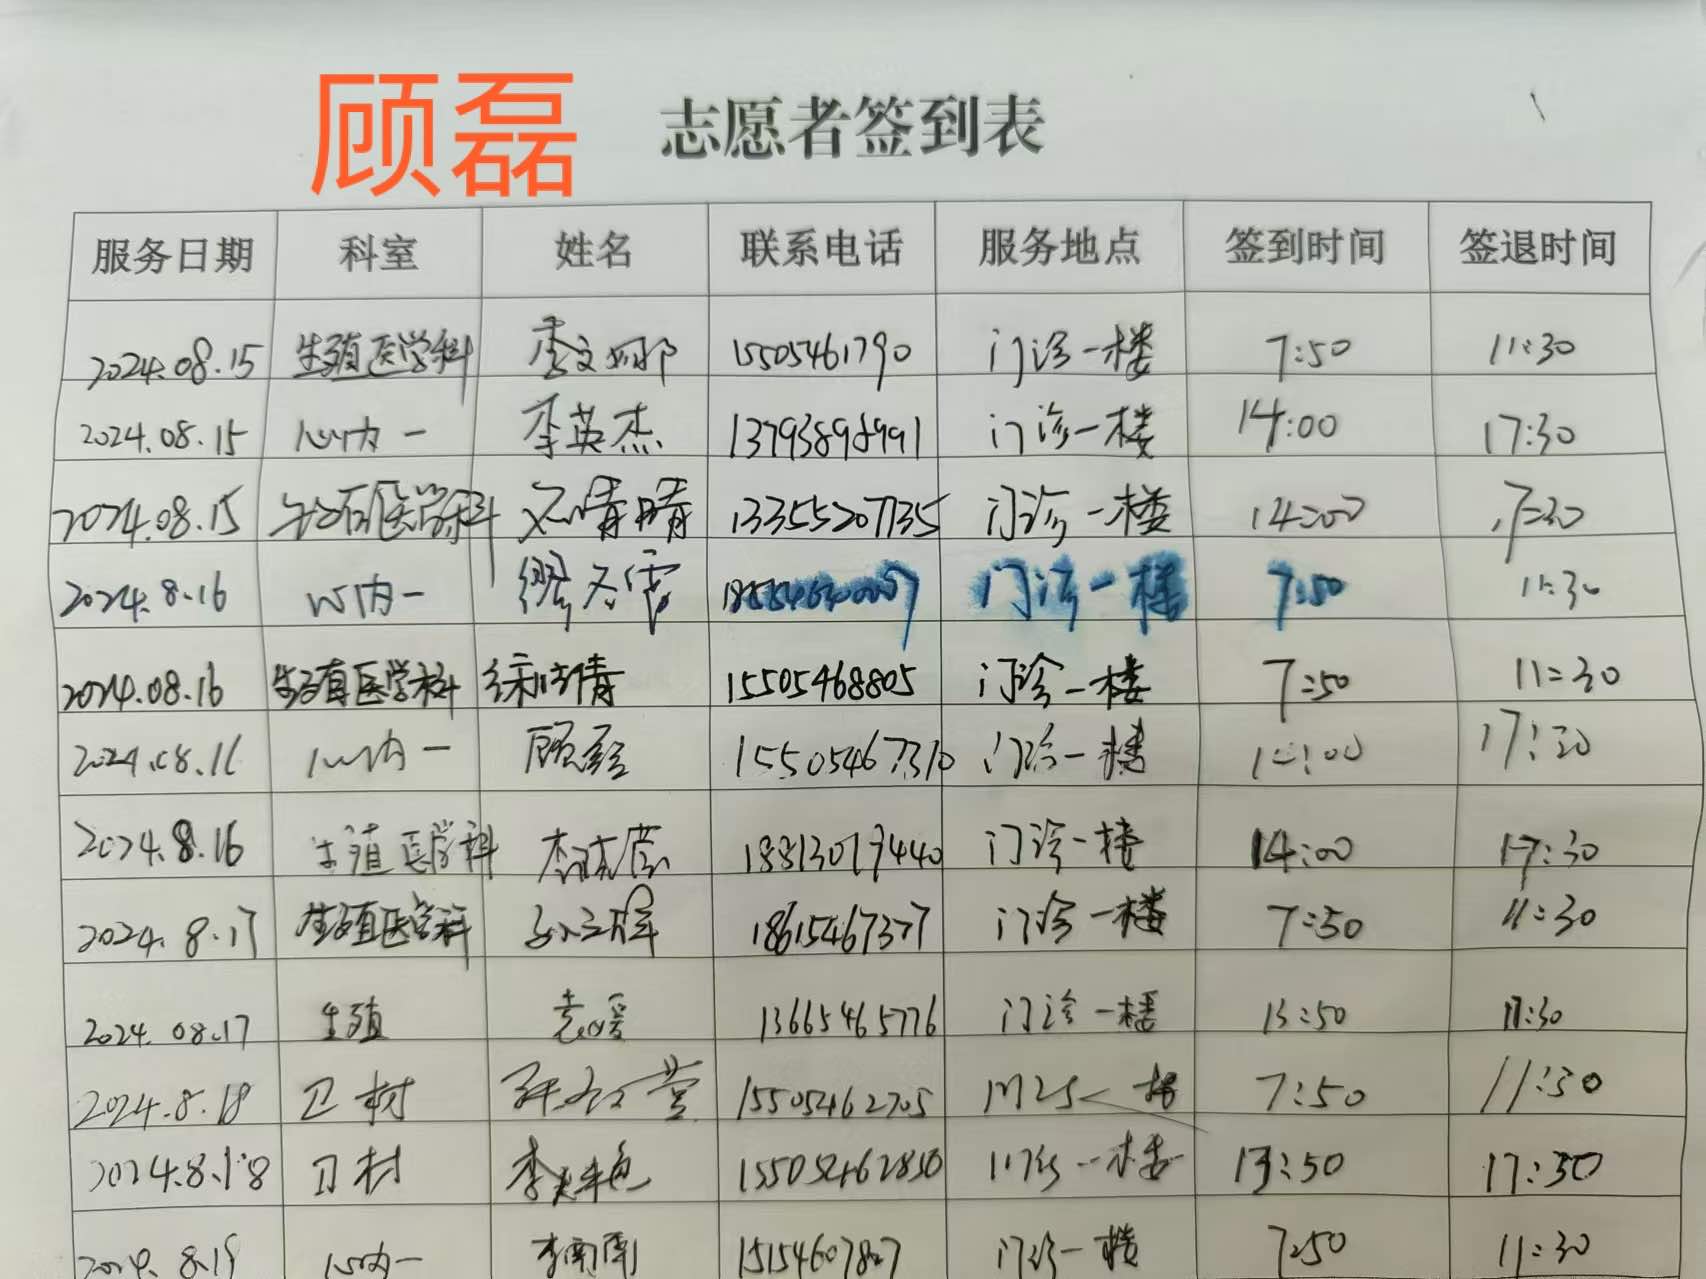 顾磊
志愿者签到表
服务日期 科室 姓名 联系电话 服务地点 签到时间 签退时间
2024.08.15 生殖医学科 李文娜 15505461790 门诊一楼 7:50 11:30
2024.08.15 心内一 李英杰 13793898991 门诊一楼 14:00 17:30
2024.08.15 生殖医学科 晴晴 13355207135 门诊一楼 14:00 17:30
2024.8.16 心内一 门诊一楼 7:50 11:30
2024.08.16 生殖医学科 徐倩 15505468805 门诊一楼 7:50 11:30
2024.08.16 心内一 顾磊 15505467310 门诊一楼 17:30
2024.8.16 生殖医学科 18813079440 门诊一楼 14:00 17:30
2024.8.17 生殖医学科 18615467377 门诊一楼 7:50 11:30
2024.08.17 生殖 袁媛 13665465776 门诊一楼 13:50
2024.8.18 卫材 15505462705 7:50 11:30
2024.8.18 卫材 李 15505462850 门诊一楼 13:50 17:30
2024.8.19 心内一 李南南 15154607807 门诊一楼 7:50 11:30